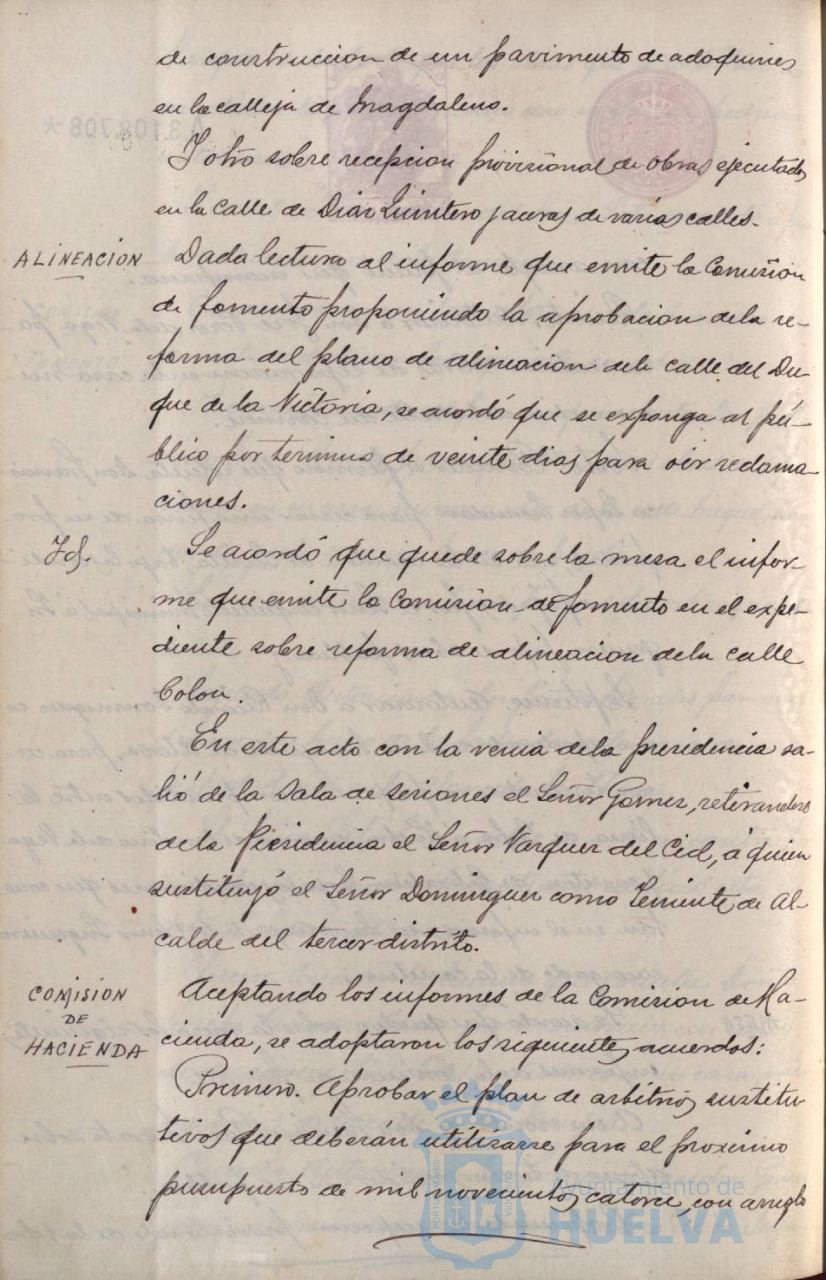 de construccion de un pavimento de adoquines
en la calleja de Magdaleno.
Y otro sobre recepcion provisional de obras ejecutadas
en la calle de Diaz Quintero y aceras de varias calles.
ALINEACIÓN
Dada lectura al informe que emite la Comisión
de fomento proponiendo la aprobacion de la re-
forma del plano de alineacion de la calle del Du-
que de la Victoria, se acordó que se exponga al pú-
blico por termino de veinte dias para oir reclama-
ciones.
Id.
Se acordó que quede sobre la mesa el infor-
me que emite la Comision de fomento en el expe-
diente sobre reforma de alineacion de la calle
Colon.
En este acto con la venia de la presidencia sa-
lió de la Sala de Sesiones el Señor Gomez, retirandose
de la Presidencia el Señor Vazquez del Cid, á quien
sustituyó el Señor Dominguez como Teniente de Al-
calde del tercer distrito.
COMISION
DE
HACIENDA
Aceptando los informes de la Comision de Ha-
cienda, se adoptaron los siguientes acuerdos:
Primero. Aprobar el plan de arbitrios sustitu-
tivos que deberán utilizarse para el proximo
presupuesto de mil novecientos catorce, con arreglo
Ayuntamiento de
HUELVA